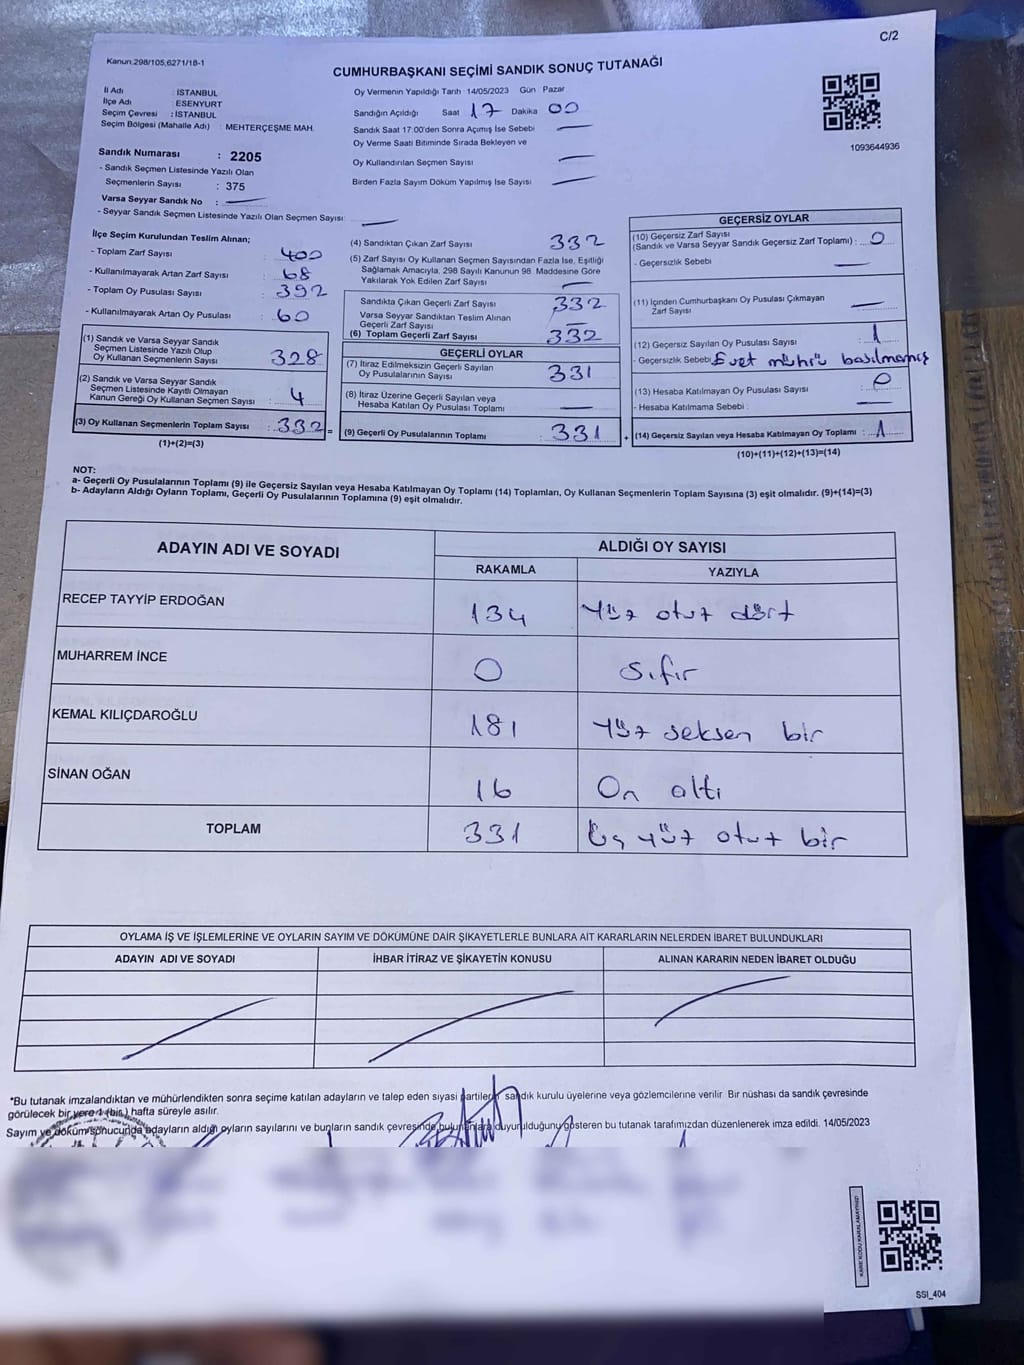 C/2
Kanun.298/105,6271/18-1
CUMHURBAŞKANI SEÇİMİ SANDIK SONUÇ TUTANAĞI
İl Adı : İSTANBUL
İlçe Adı : ESENYURT
Seçim Çevresi : İSTANBUL
Seçim Bölgesi (Mahalle Adı) : MEHTERÇEŞME MAH.
Sandık Numarası : 2205
- Sandık Seçmen Listesinde Yazılı Olan
Seçmenlerin Sayısı : 375
Varsa Seyyar Sandık No :
- Seyyar Sandık Seçmen Listesinde Yazılı Olan Seçmen Sayısı:
Oy Vermenin Yapıldığı Tarih : 14/05/2023 Gün Pazar
Sandığın Açıldığı Saat 17 Dakika 00
Sandık Saat 17:00'den Sonra Açımış İse Sebebi
Oy Verme Saati Bitiminde Sırada Bekleyen ve
Oy Kullandırılan Seçmen Sayısı
Birden Fazla Sayım Döküm Yapılmış İse Sayısı
1093644936
İlçe Seçim Kurulundan Teslim Alınan;
- Toplam Zarf Sayısı : 400
- Kullanılmayarak Artan Zarf Sayısı : 68
- Toplam Oy Pusulası Sayısı : 392
- Kullanılmayarak Artan Oy Pusulası : 60
(1) Sandık ve Varsa Seyyar Sandık
Seçmen Listesinde Yazılı Olup
Oy Kullanan Seçmenlerin Sayısı : 328
(2) Sandık ve Varsa Seyyar Sandık
Seçmen Listesinde Kayıtlı Olmayan
Kanun Gereği Oy Kullanan Seçmen Sayısı : 4
(3) Oy Kullanan Seçmenlerin Toplam Sayısı : 332 =
(1)+(2)=(3)
(4) Sandıktan Çıkan Zarf Sayısı 332
(5) Zarf Sayısı Oy Kullanan Seçmen Sayısından Fazla İse, Eşitliği
Sağlamak Amacıyla, 298 Sayılı Kanunun 98. Maddesine Göre
Yakılarak Yok Edilen Zarf Sayısı
Sandıkta Çıkan Geçerli Zarf Sayısı 332
Varsa Seyyar Sandıktan Teslim Alınan
Geçerli Zarf Sayısı
(6) Toplam Geçerli Zarf Sayısı 332
GEÇERLİ OYLAR
(7) İtiraz Edilmeksizin Geçerli Sayılan
Oy Pusulalarının Sayısı 331
(8) İtiraz Üzerine Geçerli Sayılan veya
Hesaba Katılan Oy Pusulası Toplamı
(9) Geçerli Oy Pusulalarının Toplamı 331 +
GEÇERSİZ OYLAR
(10) Geçersiz Zarf Sayısı
(Sandık ve Varsa Seyyar Sandık Geçersiz Zarf Toplamı) : 0
- Geçersizlik Sebebi
(11) İçinden Cumhurbaşkanı Oy Pusulası Çıkmayan
Zarf Sayısı
(12) Geçersiz Sayılan Oy Pusulası Sayısı 1
- Geçersizlik Sebebi Evet mührü basılmamış
(13) Hesaba Katılmayan Oy Pusulası Sayısı 0
- Hesaba Katılmama Sebebi :
(14) Geçersiz Sayılan veya Hesaba Katılmayan Oy Toplamı : 1
(10)+(11)+(12)+(13)=(14)
NOT:
a- Geçerli Oy Pusulalarının Toplamı (9) ile Geçersiz Sayılan veya Hesaba Katılmayan Oy Toplamı (14) Toplamları, Oy Kullanan Seçmenlerin Toplam Sayısına (3) eşit olmalıdır. (9)+(14)=(3)
b- Adayların Aldığı Oyların Toplamı, Geçerli Oy Pusulalarının Toplamına (9) eşit olmalıdır.
ADAYIN ADI VE SOYADI ALDIĞI OY SAYISI
RAKAMLA YAZIYLA
RECEP TAYYİP ERDOĞAN 134 Yüz otuz dört
MUHARREM İNCE 0 Sıfır
KEMAL KILIÇDAROĞLU 181 Yüz seksen bir
SİNAN OĞAN 16 On altı
TOPLAM 331 Üç yüz otuz bir
OYLAMA İŞ VE İŞLEMLERİNE VE OYLARIN SAYIM VE DÖKÜMÜNE DAİR ŞİKAYETLERLE BUNLARA AİT KARARLARIN NELERDEN İBARET BULUNDUKLARI
ADAYIN ADI VE SOYADI İHBAR İTİRAZ VE ŞİKAYETİN KONUSU ALINAN KARARIN NEDEN İBARET OLDUĞU
*Bu tutanak imzalandıktan ve mühürlendikten sonra seçime katılan adayların ve talep eden siyasi partilerin sandık kurulu üyelerine veya gözlemcilerine verilir. Bir nüshası da sandık çevresinde
görülecek bir yere 1 (bir) hafta süreyle asılır.
Sayım ve döküm sonucunda adayların aldığı oyların sayılarını ve bunların sandık çevresinde bulunanlara duyurulduğunu gösteren bu tutanak tarafımızdan düzenlenerek imza edildi. 14/05/2023
KARE KODU KARALAMAYINIZ!
SSI_404